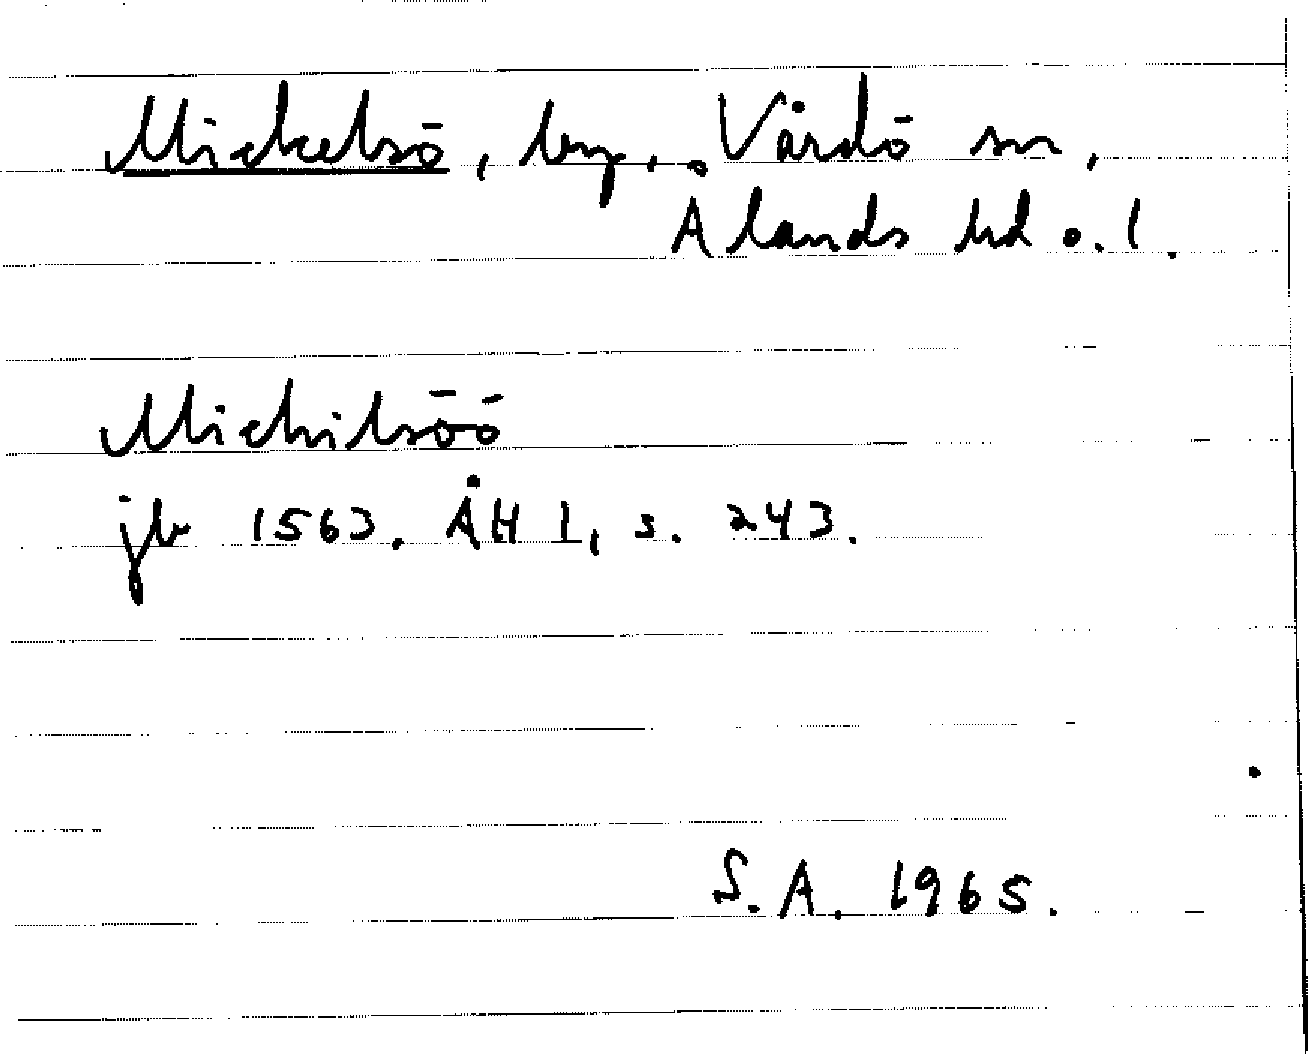 Mickelsö, by, Vårdö sn,
Ålands hd o. l.
Michilsöö
jb 1563. ÅH I, s. 243.
S.A. 1965.